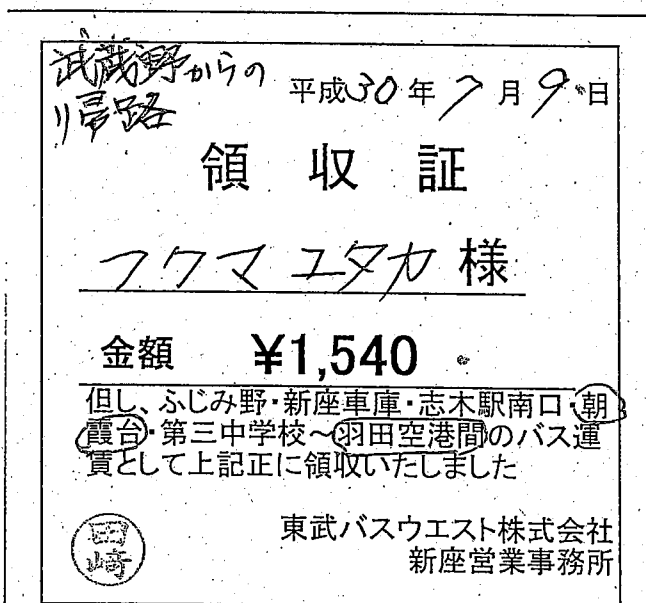 武蔵野からの
帰路
平成30年7月9日
領収証
フクマ ユタカ 様
金額 ¥1,540
但し、ふじみ野・新座車庫・志木駅南口・朝
霞台・第三中学校～羽田空港間のバス運
賃として上記正に領収いたしました
東武バスウエスト株式会社
新座営業事務所
田
崎